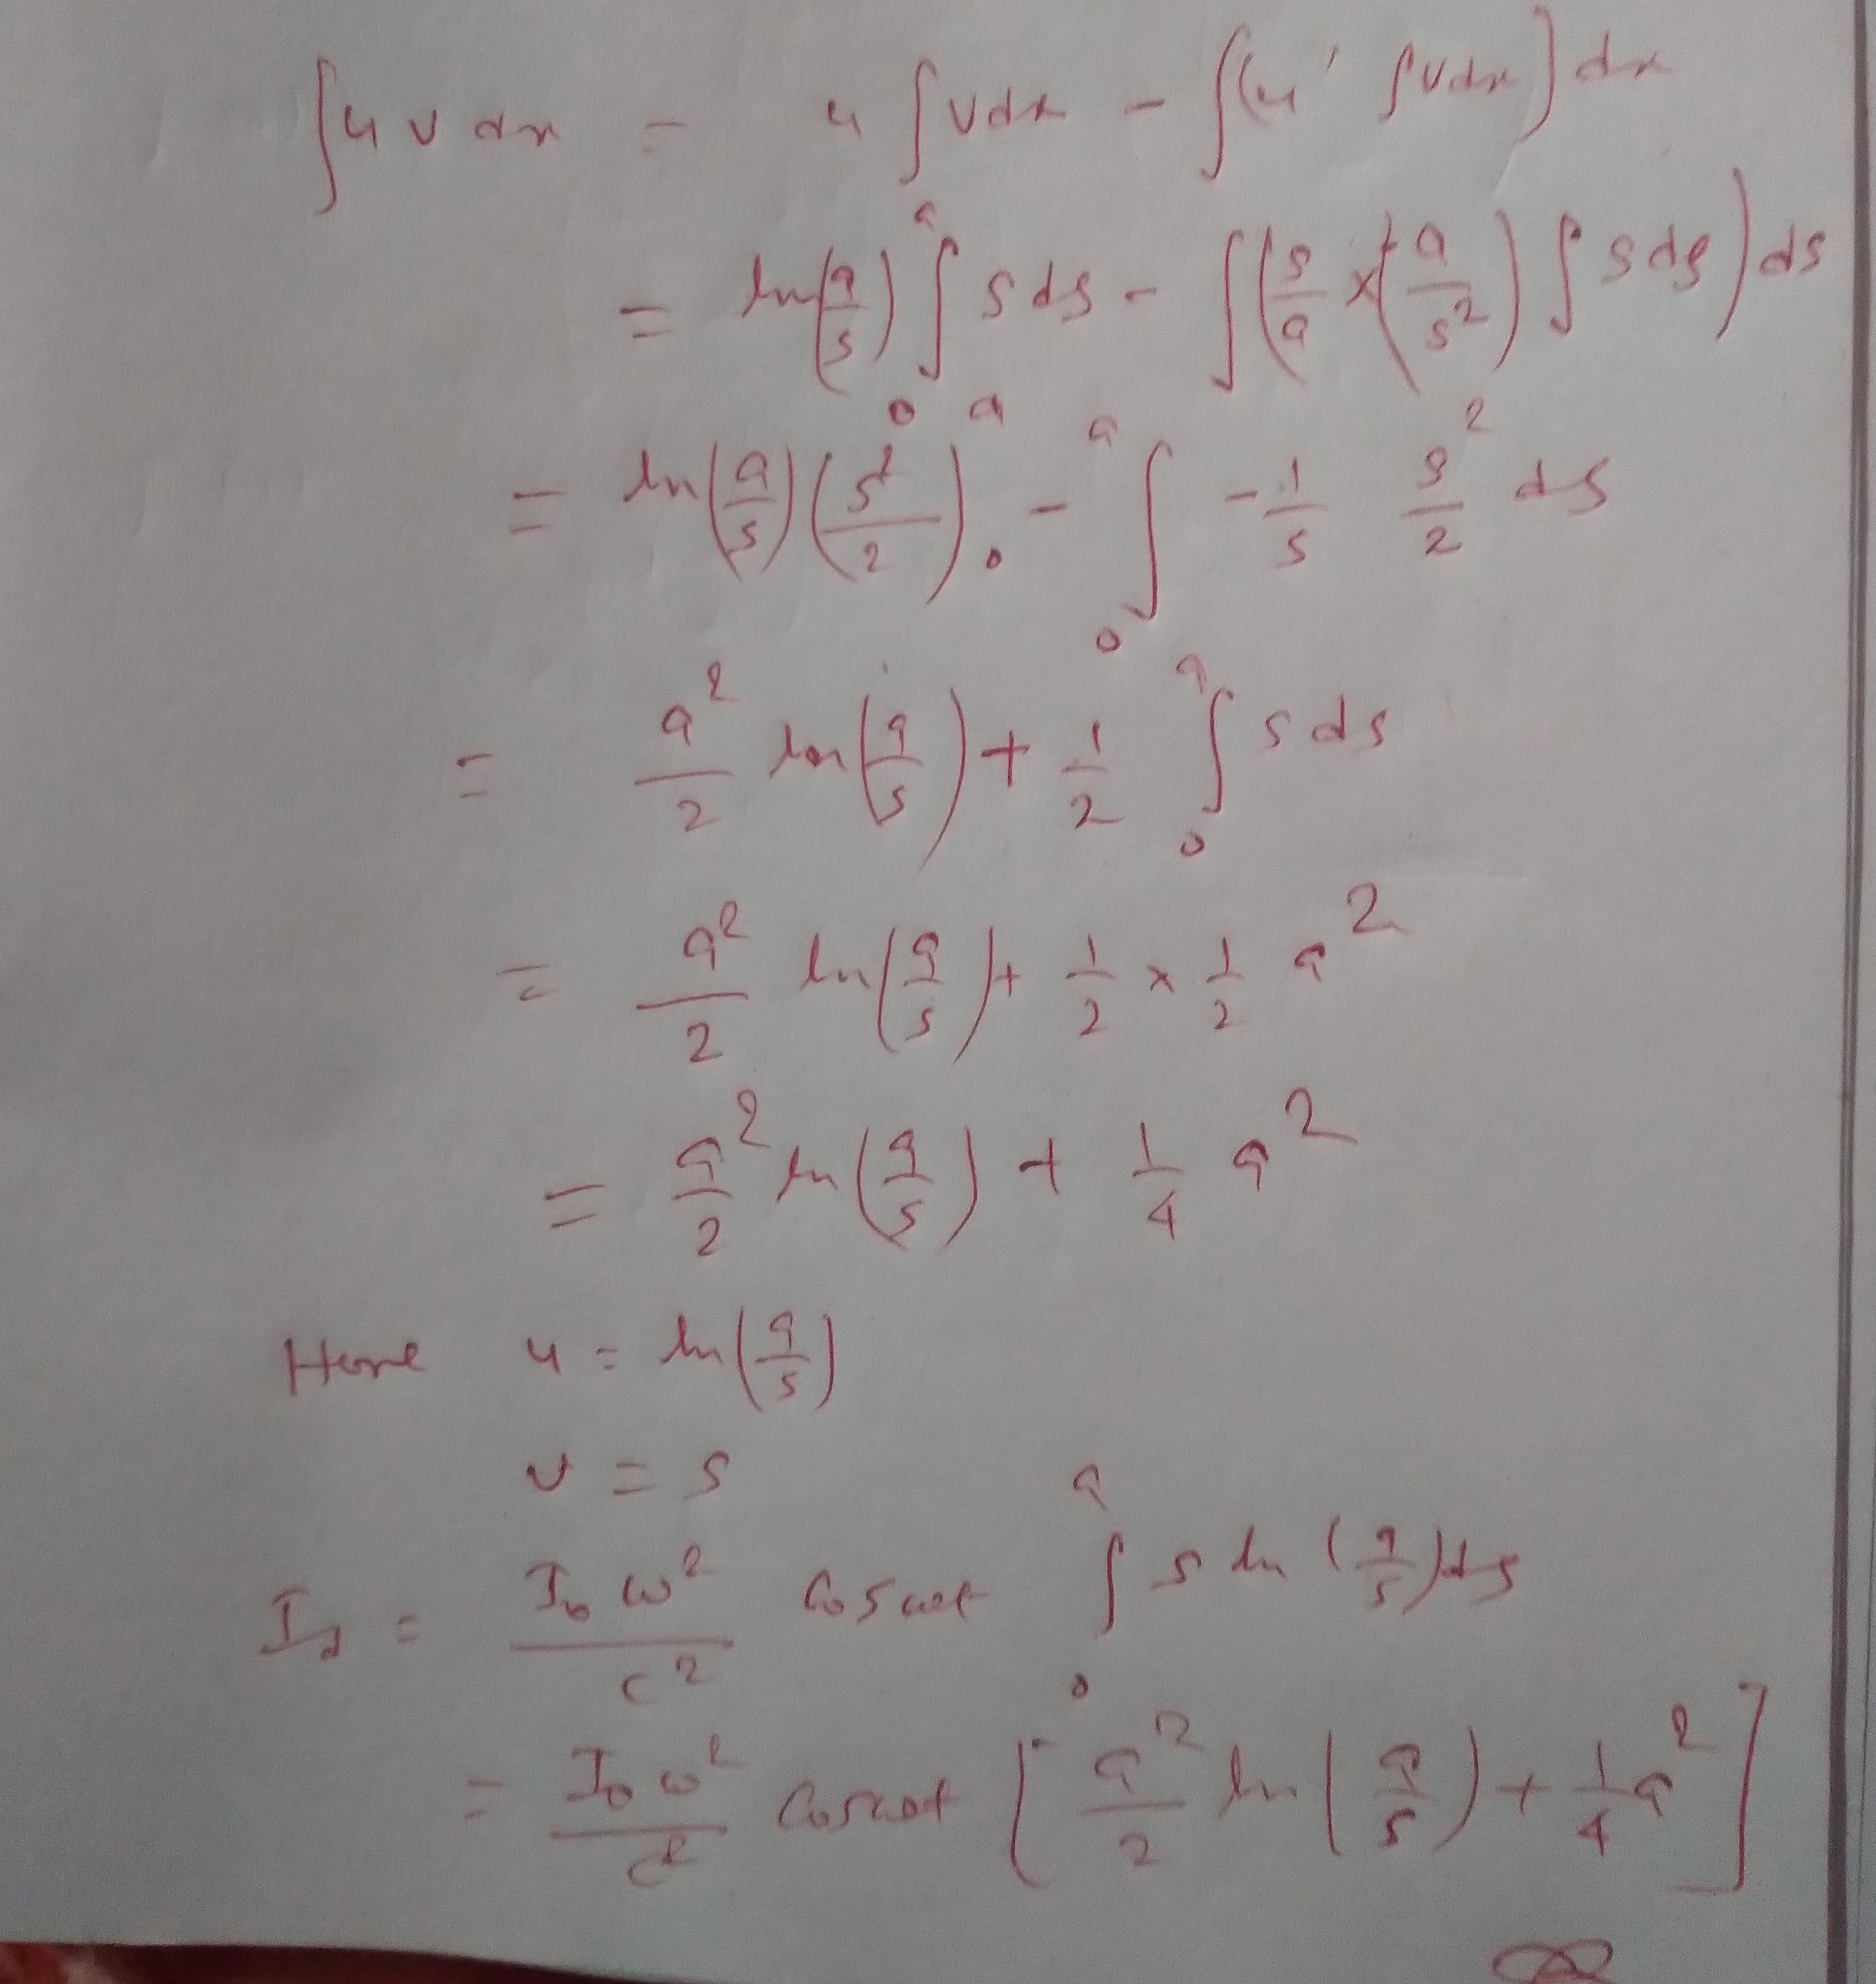 ∫ u v dx = u ∫ v dx - ∫ (u' ∫ v dx) dx
= ln(a/s) ∫₀ᵃ s ds - ∫ (s/a × (-a/s²) ∫ s ds) ds
= ln(a/s) (s²/2)₀ᵃ - ∫₀ᵃ -1/s s²/2 ds
= a²/2 ln(a/s) + 1/2 ∫₀ᵃ s ds
= a²/2 ln(a/s) + 1/2 × 1/2 a²
= a²/2 ln(a/s) + 1/4 a²
Here u = ln(a/s)
v = s
I_d = I₀ω²/c² cos ωt ∫₀ᵃ s ln(a/s) ds
= I₀ω²/c² cos ωt [a²/2 ln(a/s) + 1/4 a²]